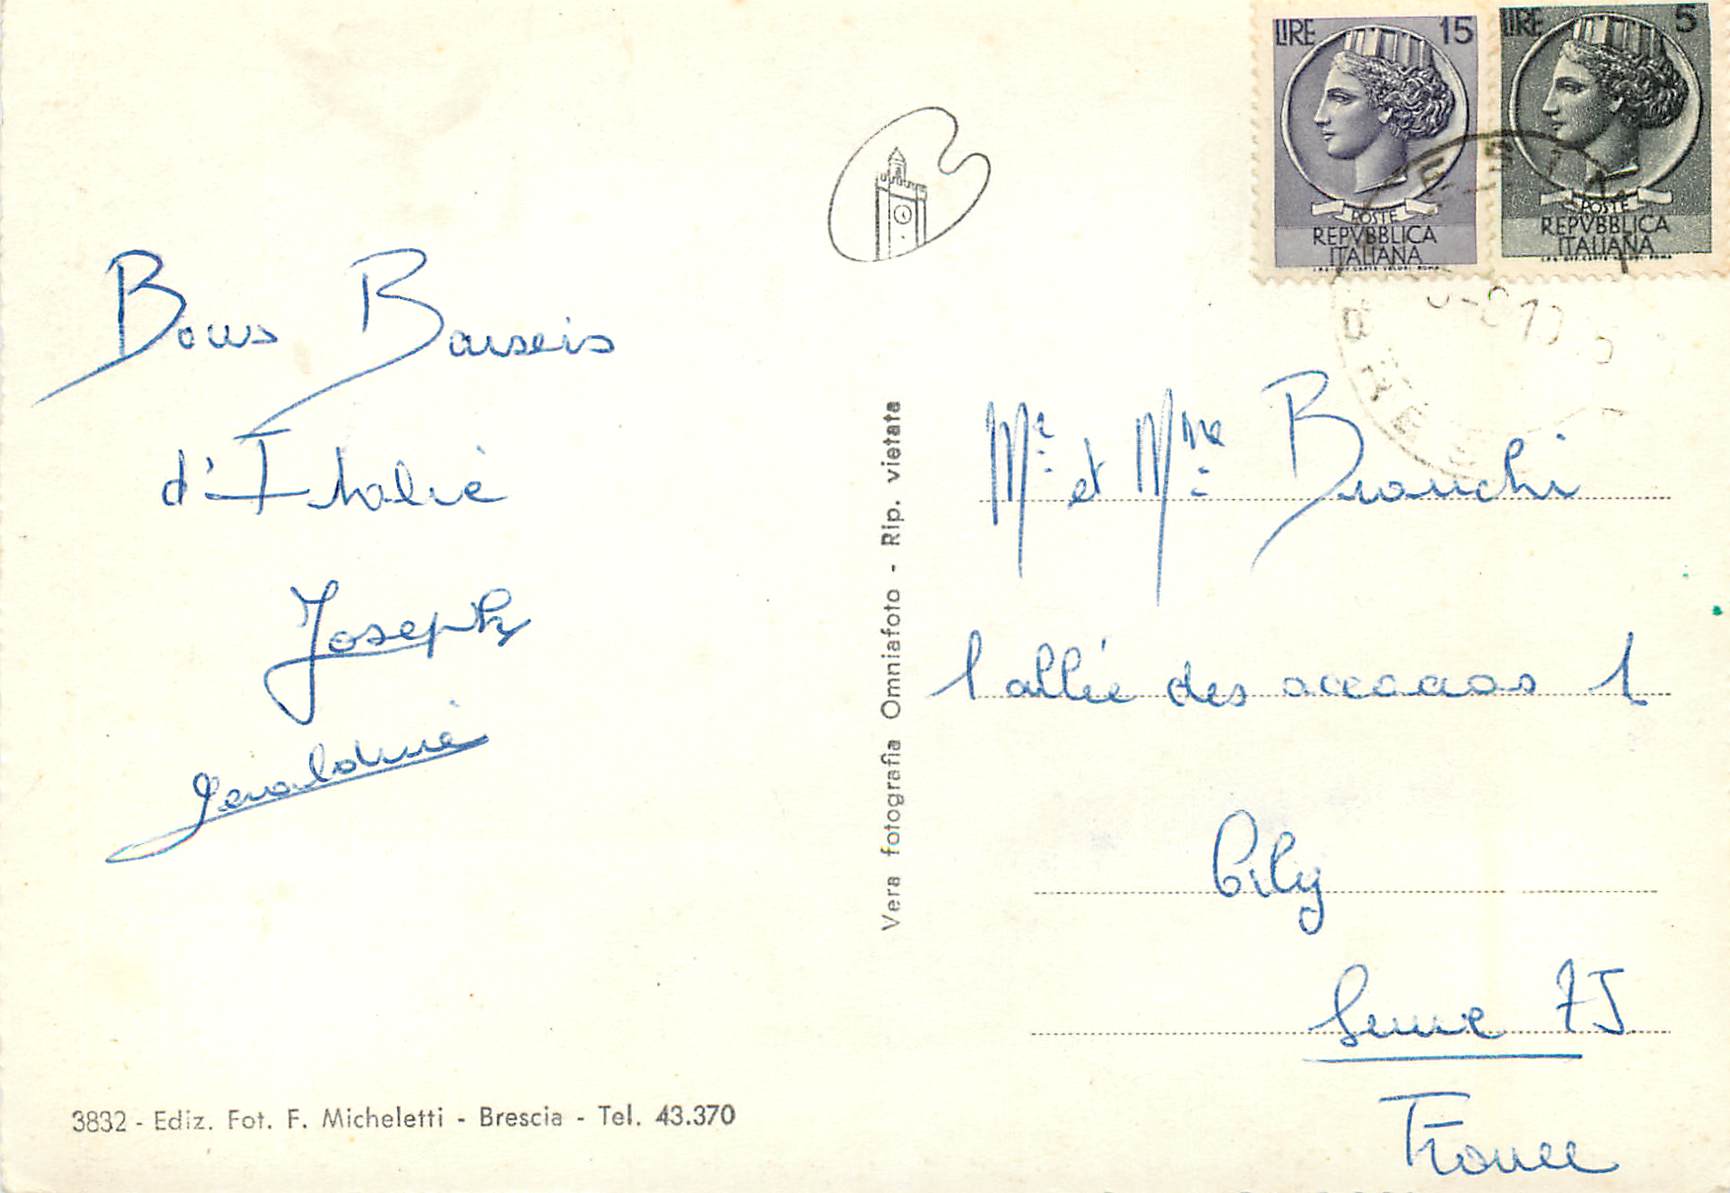 LIRE 15
POSTE
REPVBBLICA
ITALIANA
LIRE 5
POSTE
REPVBBLICA
ITALIANA
Bons Baiseis
d'Italie
Joseph
Geraldine
Vera fotografia Omniafoto - Rip. vietata
Mr et Mme Bianchi
1 allée des accacias 1
Seine 75
France
3832 - Ediz. Fot. F. Micheletti - Brescia - Tel. 43.370